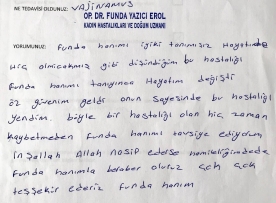 NE TEDAVİSİ OLDUNUZ: VAJİNAMUS
OP. DR. FUNDA YAZICI EROL
KADIN HASTALIKLARI VE DOĞUM UZMANI
YORUMUNUZ: Funda hanımı iyiki tanımışız Hayatımda
Hiç olmicakmış gibi düşündüğüm bu hastalığı
Funda hanımı tanıyınca Hayatım değişti
öz güvenim geldi onun sayesinde bu hastalığı
yendim. böyle bir hastalığı olan hiç zaman
kaybetmeden Funda hanımı tavsiye ediyorum
İnşallah Allah nasip ederse hamileliğimdede
Funda hanımla beraber oluruz çok çok
teşşekir ederiz Funda hanım